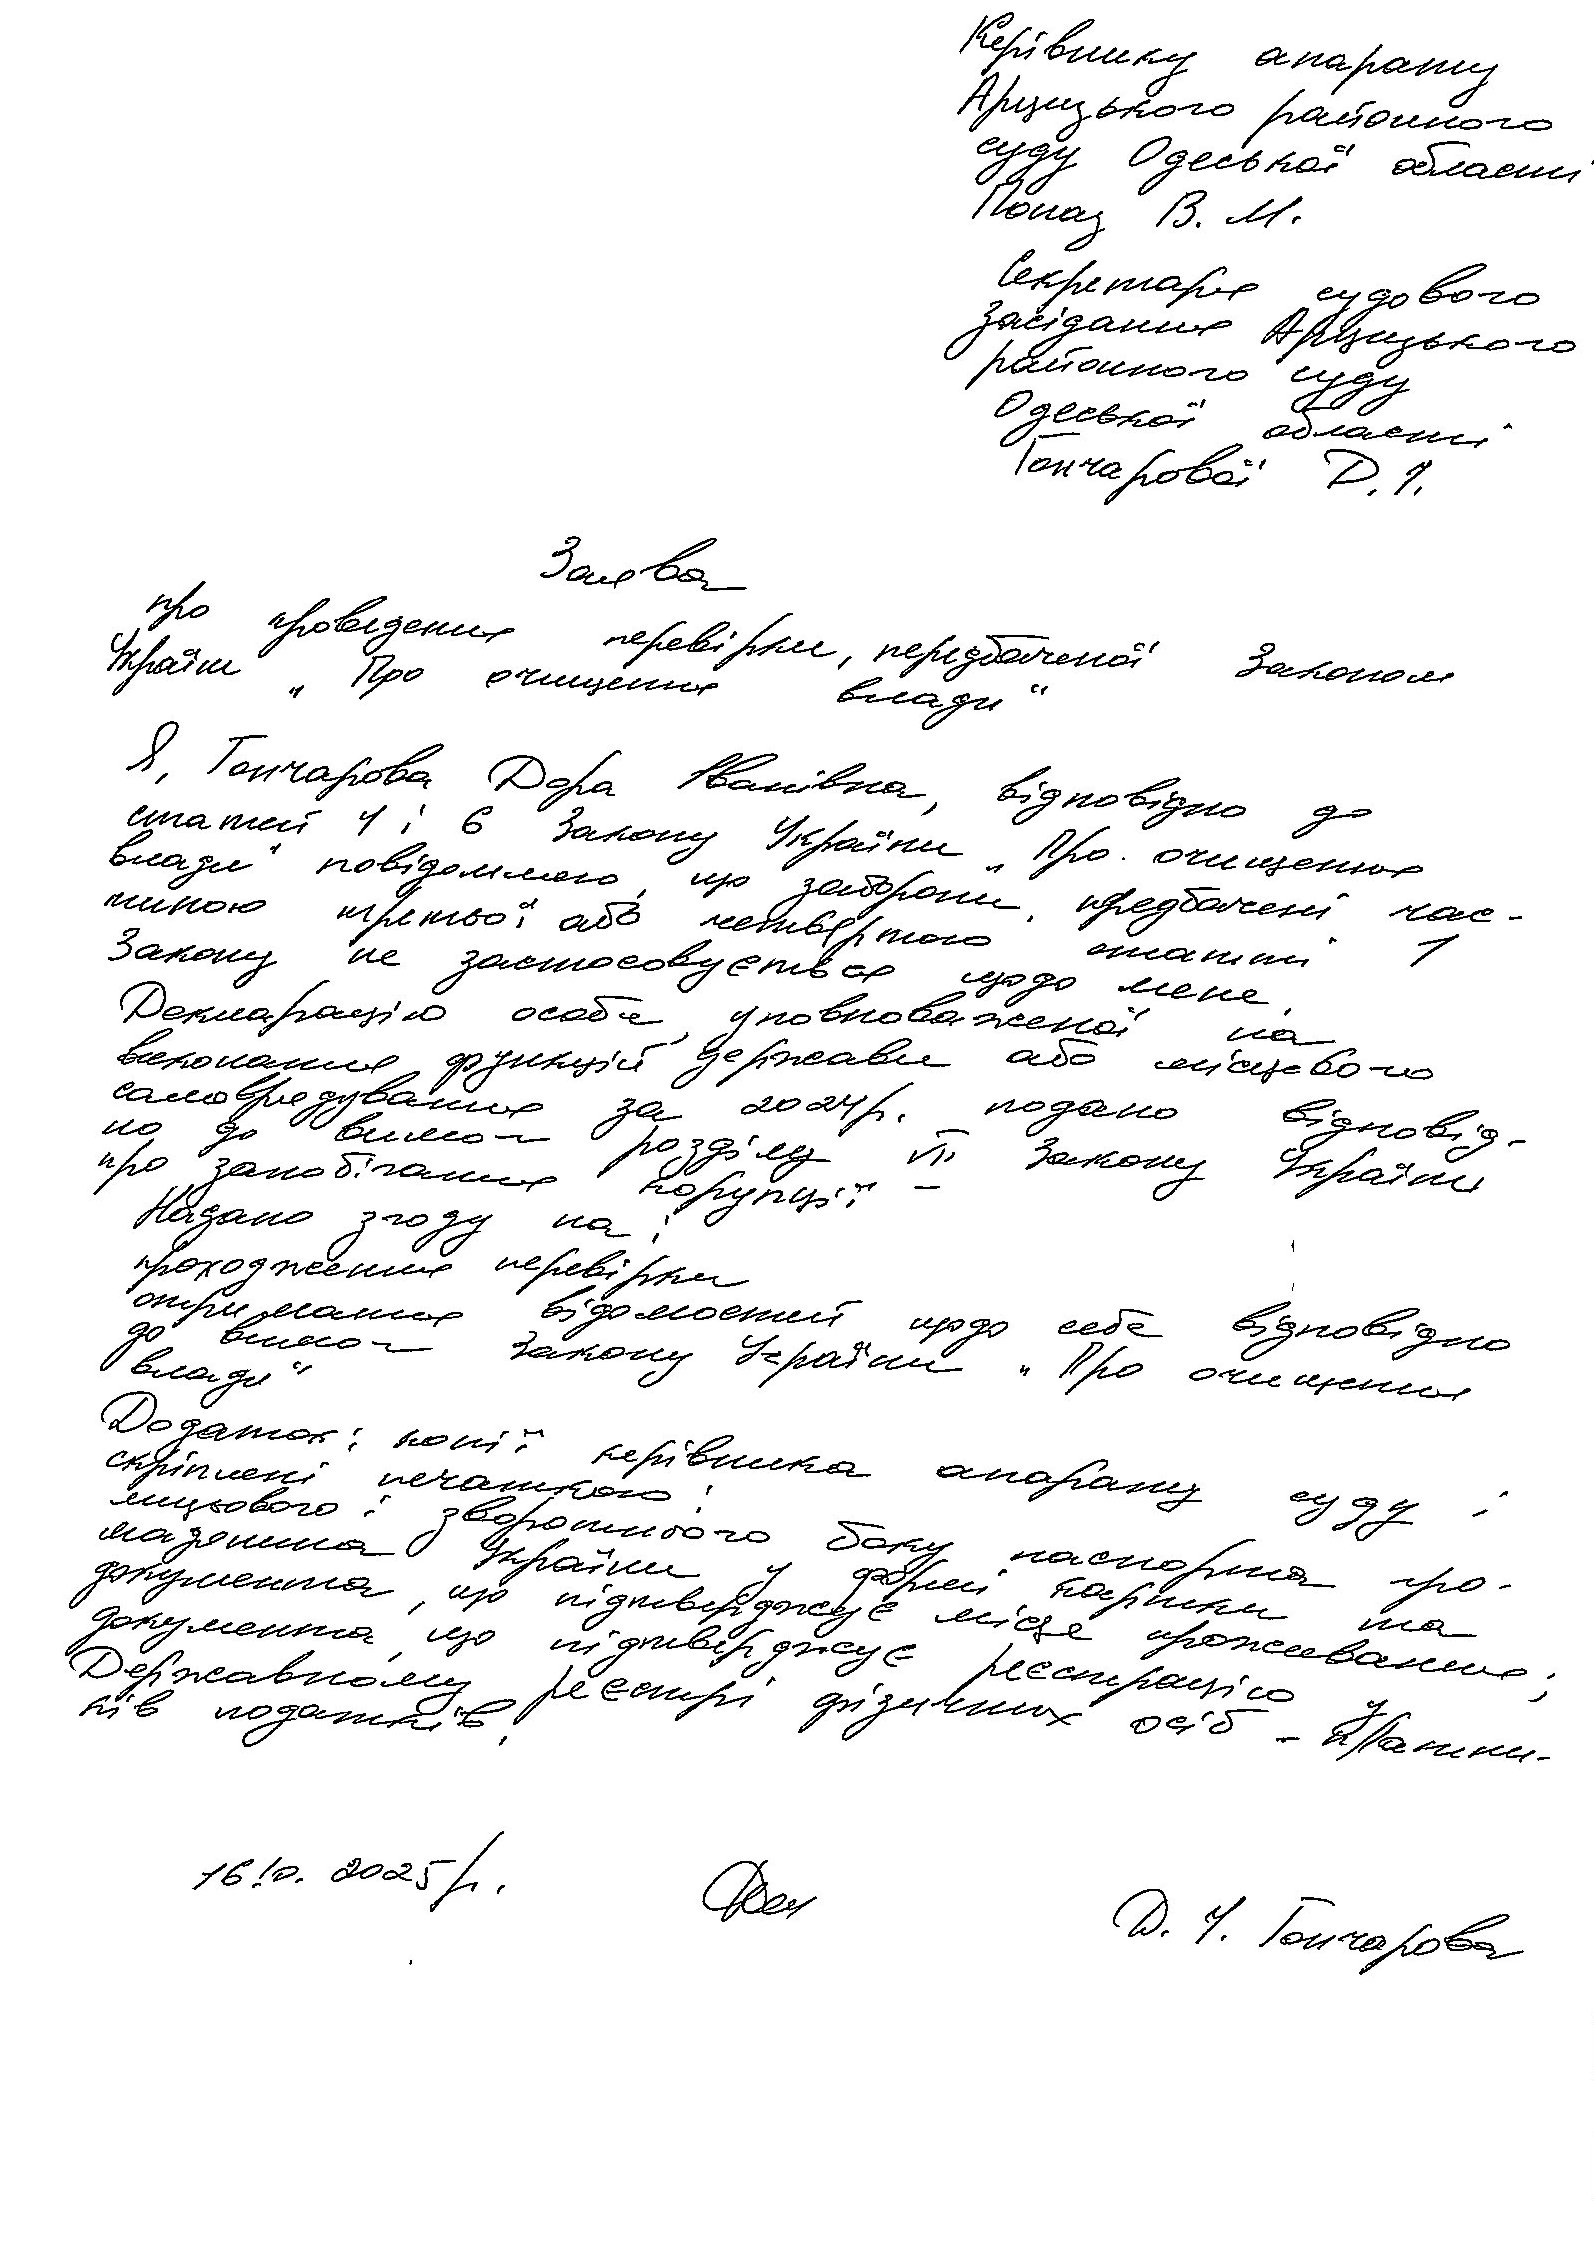 Керівнику апарату
Арцизького районного
суду Одеської області
Попаз В. М.
Секретаря судового
засідання Арцизького
районного суду
Одеської області
Гончарової Д. І.
Заява
про проведення перевірки, передбаченої Законом
України „Про очищення влади"
Я, Гончарова Дора Іванівна, відповідно до
статей 4 і 6 Закону України „Про очищення
влади" повідомляю, що заборони, предбачені час-
тиною третьої або четвертою статті 1
Закону не застосовується щодо мене,
Декларацію особи, уповноваженої на
виконання функцій держави або місцевого
самоврядування за 2024р. подано відповід-
но до вимог розділу VII Закону України
про запобігання корупції –
Надано згоду на:
проходження перевірки
отримання відомостей щодо себе відповідно
до вимог Закону України „Про очищення
влади"
Додаток: копії керівника апарату суду і
скріплені печаткою:
лицьового і зворотнього боку паспорта гро-
мадянина України у формі картки та
документа, що підтверджує місце проживання;
документа, що підтверджує реєстрацію у
Державному реєстрі фізичних осіб – платни-
ків податків.
16.10.2025р.
Д. І. Гончарова